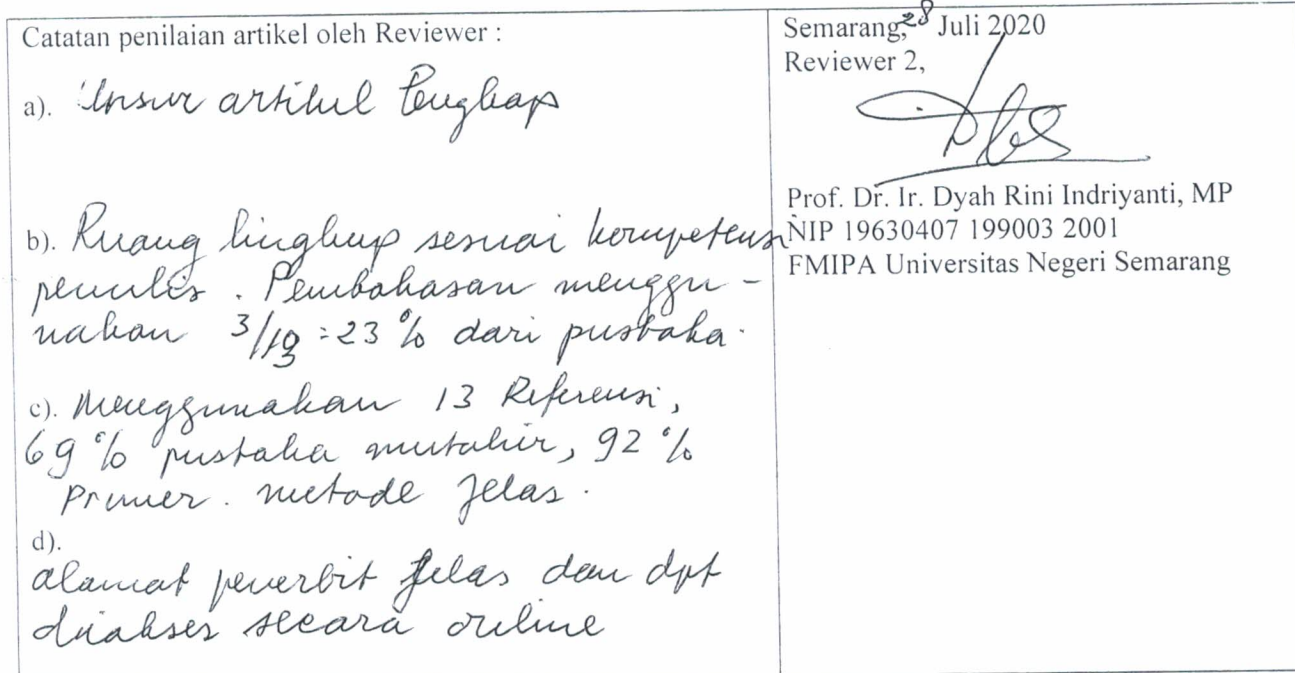 Catatan penilaian artikel oleh Reviewer :
a). Unsur artikel lengkap
b). Ruang lingkup sesuai kompetensi
penulis. Pembahasan menggu-
nakan 3/13 = 23 % dari pustaka.
c). Menggunakan 13 Referensi,
69 % pustaka mutahir, 92 %
Primer. metode jelas.
d).
alamat penerbit jelas dan dpt
diakses secara online
Semarang, 28 Juli 2020
Reviewer 2,
Prof. Dr. Ir. Dyah Rini Indriyanti, MP
NIP 19630407 199003 2001
FMIPA Universitas Negeri Semarang